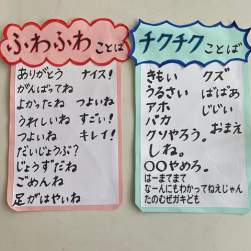 ふわふわことば
ありがとう　ナイス！
がんばってね
よかったね　つよいね
うれしいね　すごい！
つよいね　キレイ！
だいじょうぶ？
じょうずだね
ごめんね
足がはやいね
チクチクことば
きもい　クズ
うるさい　ばばあ
アホ　じじい
バカ　おまえ
クソやろう。
しね。
〇〇やめろ。
はーまてまて
なーんにもわかってねえじゃん
たのむぜガキども